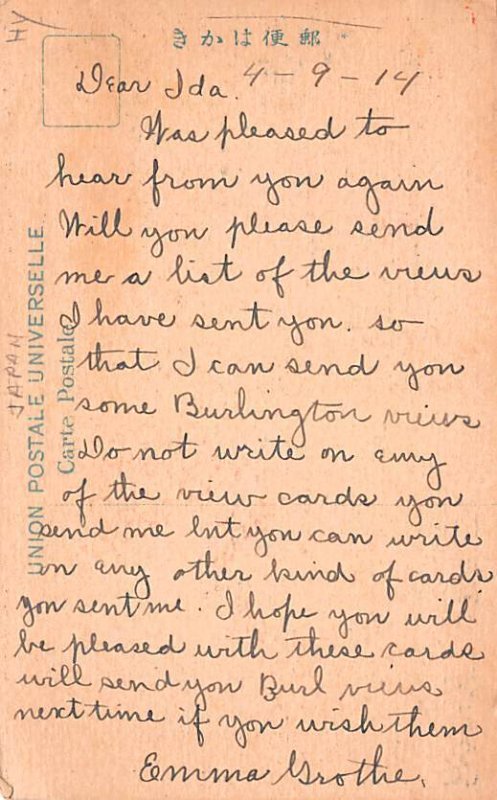 HY
きかは便郵
Dear Ida. 4-9-14
Was pleased to
hear from you again
Will you please send
me a list of the views
I have sent you. so
that I can send you
some Burlington views
Do not write on any
of the view cards you
send me but you can write
on any other kind of cards
you sent me. I hope you will
be pleased with these cards
will send you Burl views
next time if you wish them
Emma Grothe.
JAPAN
UNION POSTALE UNIVERSELLE
Carte Postale